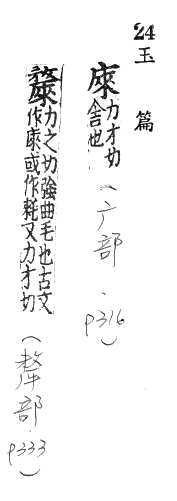 24
玉篇
庲力才切
舍也
(广部.
p316)
斄力之切強曲毛也古文
作庲或作耗又力才切
(犛部.
p333)